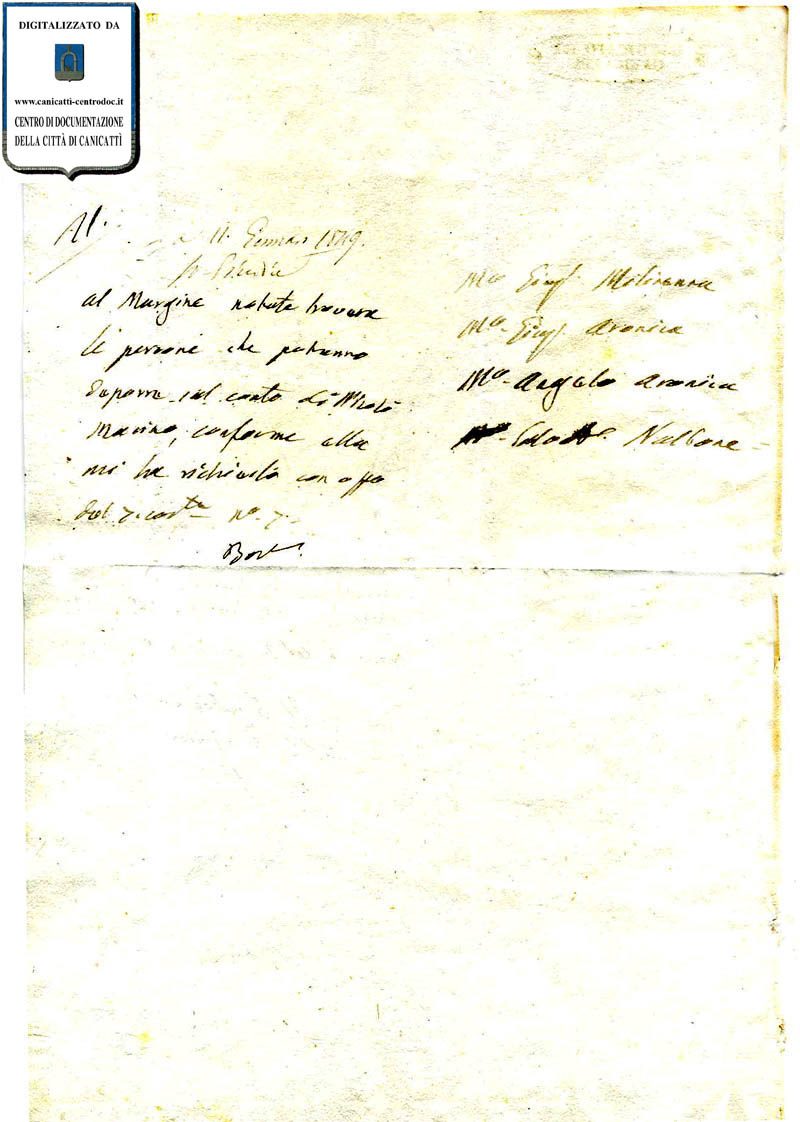 DIGITALIZZATO DA
www.canicatti-centrodoc.it
CENTRO DI DOCUMENTAZIONE
DELLA CITTÀ DI CANICATTÌ
11 Gennaro 1849.
al Margine notate trovera
le persone che potranno
deporre sul conto di
Marino, conforme ella
mi ha richiesto con
del 7. corte n° 7.
Mro Giuse
Mro Giuse Aronica
Mro Angelo Aronica
Nalbone